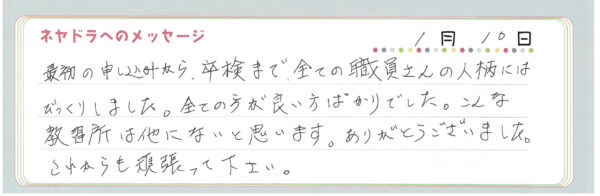 ネヤドラへのメッセージ
1月10日
最初の申し込みから、卒検まで、全ての職員さんの人柄には
びっくりしました。全ての方が良い方ばかりでした。こんな
教習所は他にないと思います。ありがとうございました。
これからも頑張って下さい。